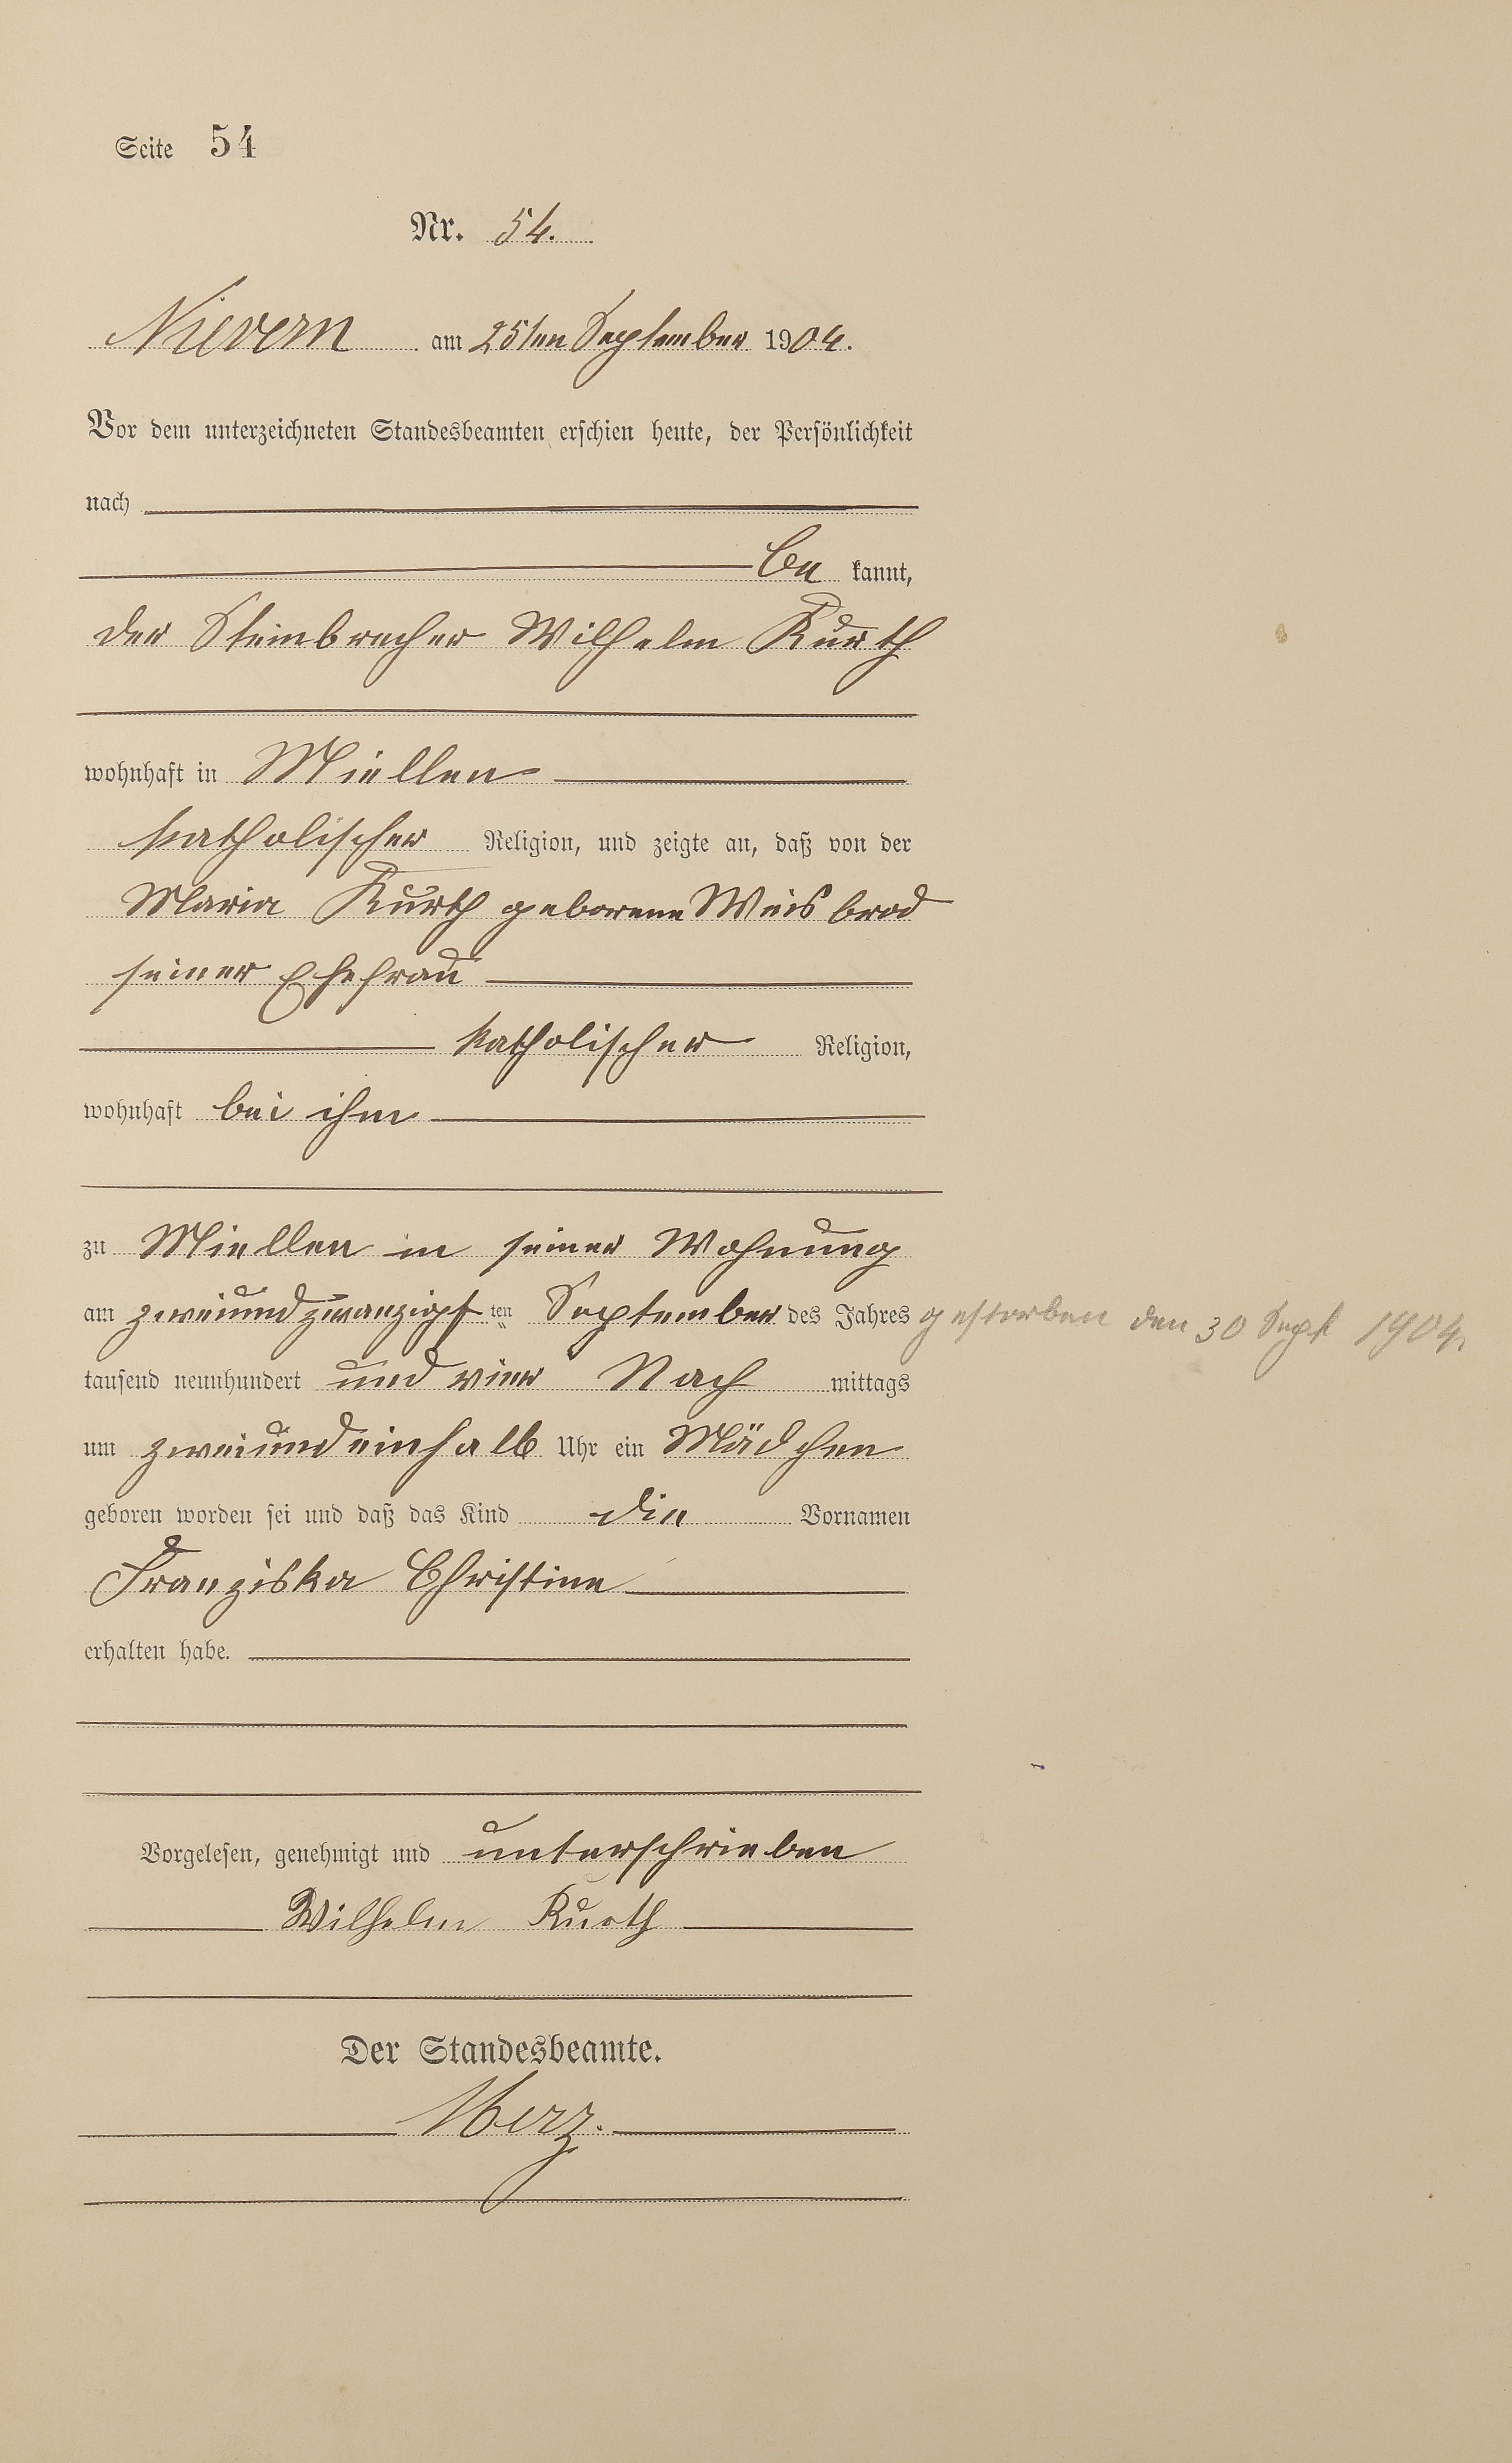 Seite 54
Nr. 54.
Nievern am 25ten September 1904.
Vor dem unterzeichneten Standesbeamten erschien heute, der Persönlichkeit
nach
be kannt,
der Steinbrecher Wilhelm Kurth
wohnhaft in Miellen
katholischer Religion, und zeigte an, daß von der
Maria Kurth geborene Weisbrod
seiner Ehefrau
katholischer Religion,
wohnhaft bei ihm
zu Miellen in seiner Wohnung
am zweiundzwanzigst ten September des Jahres gestorben den 30 Sept 1904.
tausend neunhundert und vier Nach mittags
um zweiundeinhalb Uhr ein Mädchen
geboren worden sei und daß das Kind die Vornamen
Franziska Christine
erhalten habe.
Vorgelesen, genehmigt und unterschrieben
Wilhelm Kurth
Der Standesbeamte.
Merz.